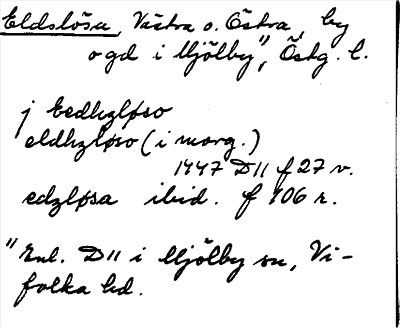 Eldslösa, Västra o. Östra, by
o gd i Mjölby", Östg. l.
j Eedhzløso
eldhzløso (i marg.)
1447 D11 f 27 v.
edzløsa ibid. f 106 r.
" Enl. D11 i Mjölby sn, Vi-
folka hd.